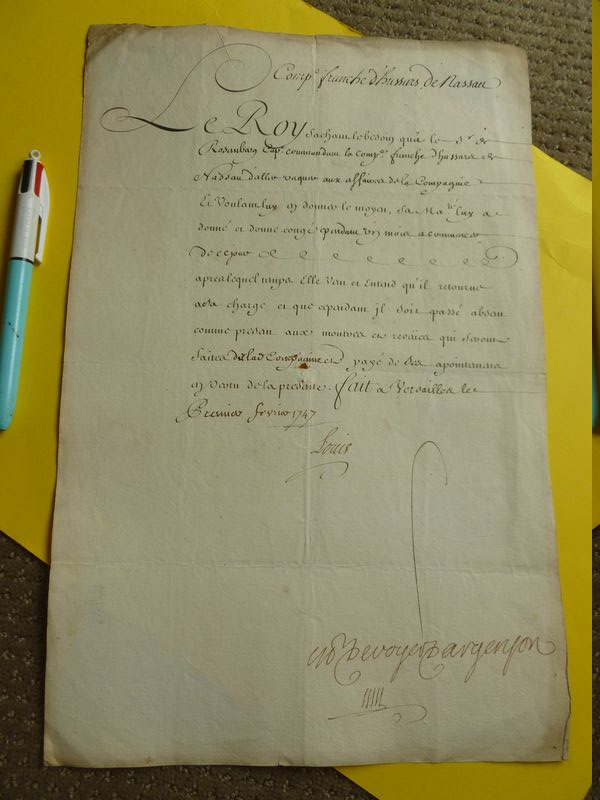 Comp.e franche d'hussars de Nassau
Le Roy sachant le besoin qu'a le S.r de
Rosenberg Cap.e commandant la comp.e franche d'hussars de
Nassau d'aller vaquer aux affaires de la Compagnie
Et Voulant luy en donner le moyen, Sa Ma.té luy a
donné et donne congé pendant Un mois a commencer
de ce jour
apres lequel temps Elle Veut et Entend qu'il retourne
a sa charge et que cependant jl soit passé absent
comme present aux montres et reveües qui seront
faites de lad. Compagnie et payé de ses apointemens
en vertu de la presente. fait a Versailles le
Premier fevrier 1747
Louis
M De voyer D'argenson